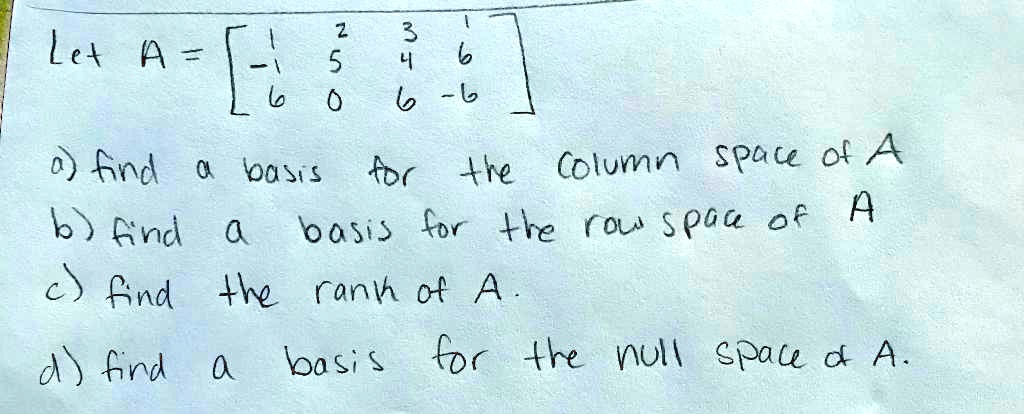 Let A = [ 1 2 3 1
-1 5 4 6
6 0 6 -6 ]
a) find a basis for the column space of A
b) find a basis for the row space of A
c) find the rank of A.
d) find a basis for the null space of A.